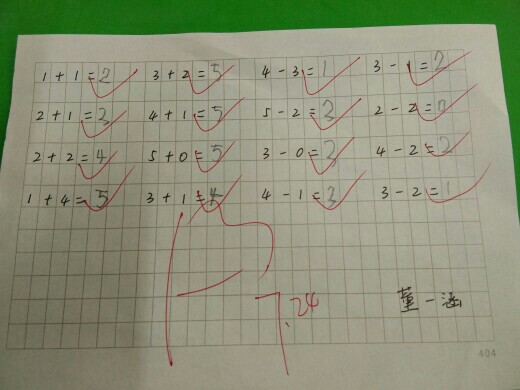 1 + 1 = 2 3 + 2 = 5 4 - 3 = 1 3 - 1 = 2
2 + 1 = 3 4 + 1 = 5 5 - 2 = 3 2 - 2 = 0
2 + 2 = 4 5 + 0 = 5 3 - 0 = 3 4 - 2 = 2
1 + 4 = 5 3 + 1 = 4 4 - 1 = 3 3 - 2 = 1
7.24
董一涵
404